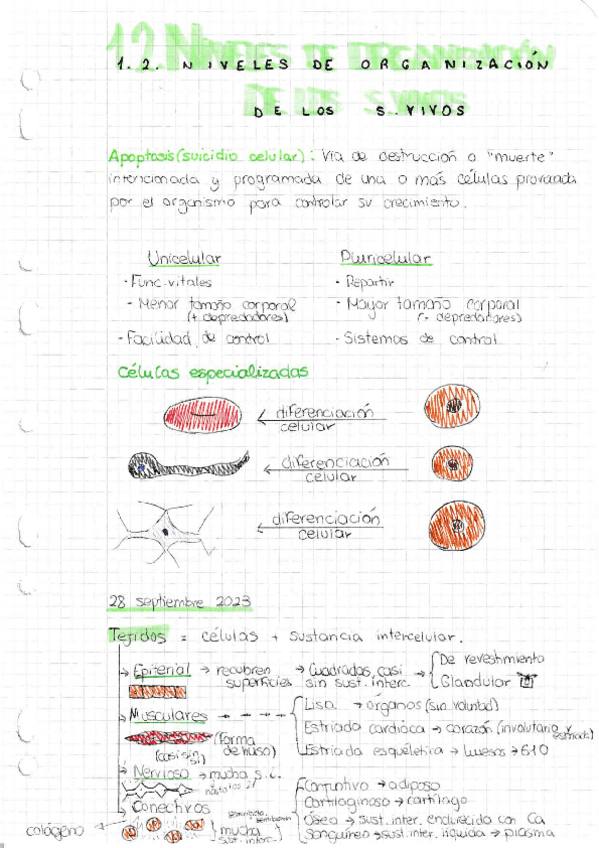 1.2. NIVELES DE ORGANIZACIÓN
DE LOS S.VIVOS
Apoptosis (suicidio celular): Vía de destrucción o "muerte"
intencionada y programada de una o más células provocada
por el organismo para controlar su crecimiento.
Unicelular
- Func. vitales
- Menor tamaño corporal
(+ depredadores)
- Facilidad de control
Pluricelular
- Repartir
- Mayor tamaño corporal
(- depredadores)
- Sistemas de control
Células especializadas
diferenciación
celular
diferenciación
celular
diferenciación
celular
28 septiembre 2023
Tejidos = células + sustancia intercelular.
Epiterial → recubren superficies → Cuadradas, casi sin sust. interc. → De revestimiento
Glandular
Musculares
(forma de huso)
(casi sin si)
Lisa → organos (sin voluntad)
Estriada cardiáca → corazón (involutario y
Estriada esquéletica → huesos → 610
Nervioso → mucha s.i.
Conectivos
colágeno
mucha sust. interc.
Conjuntivo → adiposo
Cartilaginoso → cartílago
Óseo → sust. inter. endurecida con Ca
Sanguíneo → sust. inter. líquida → plasma